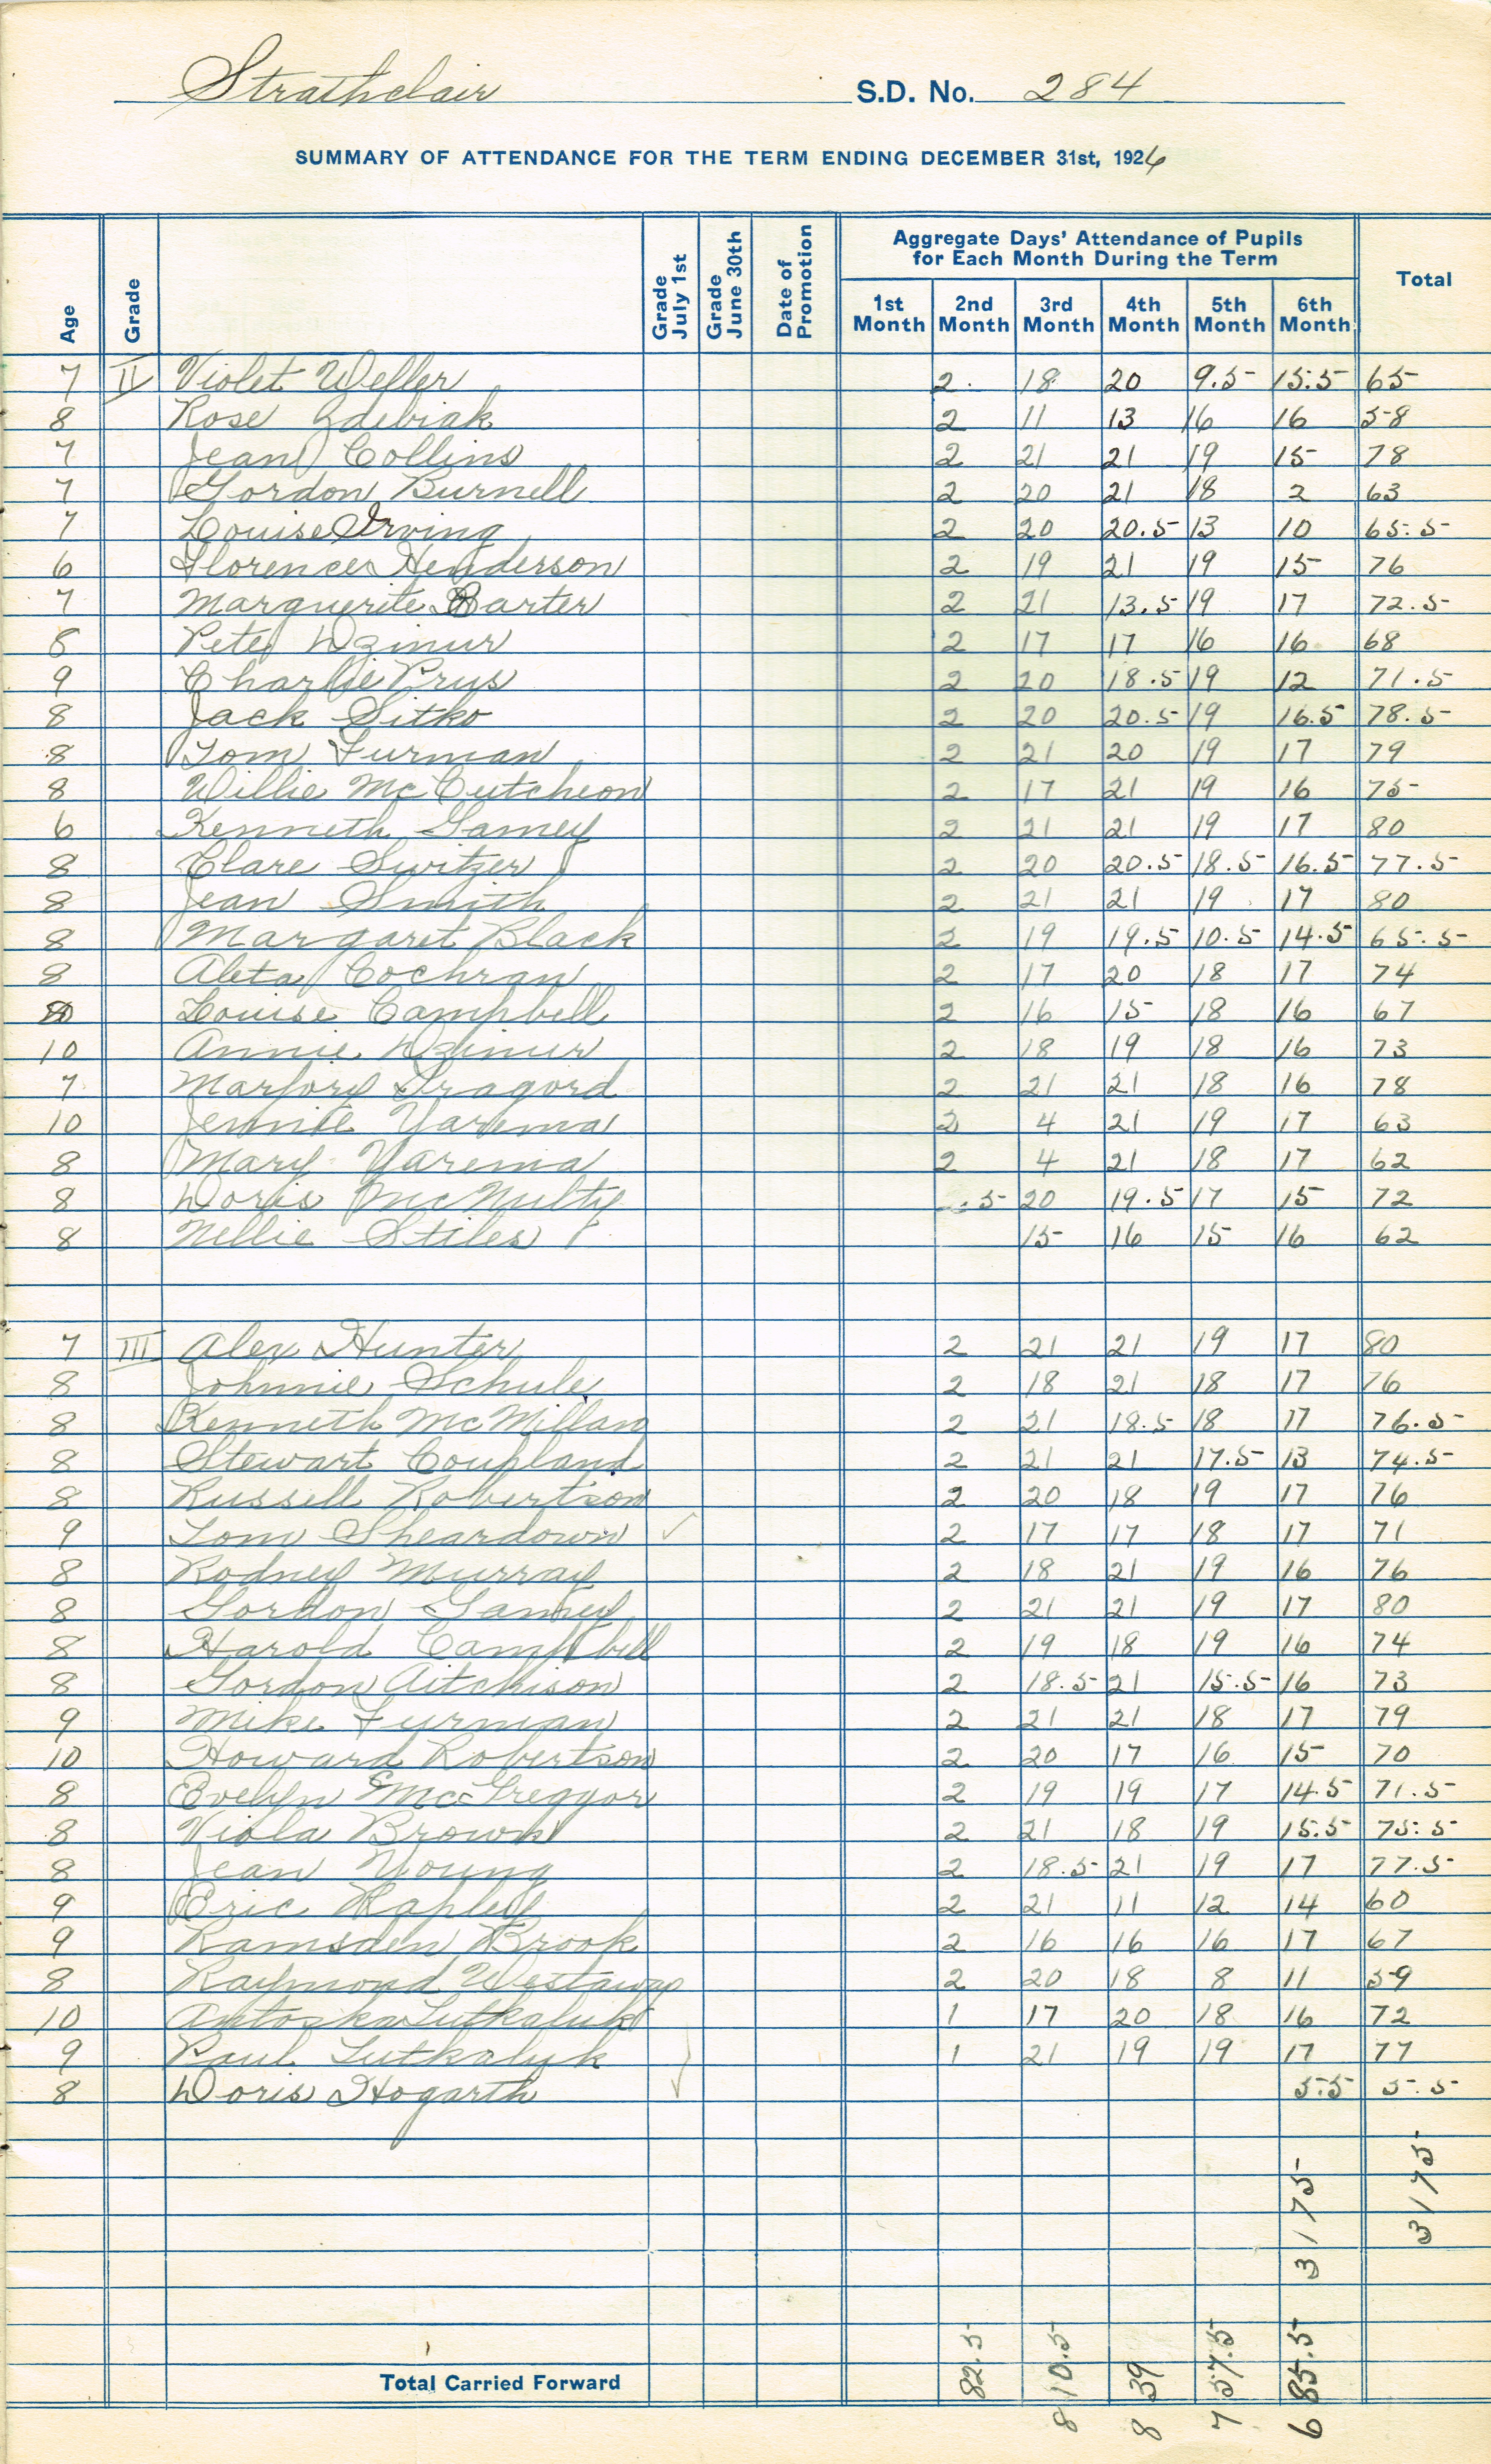 Strathclair S.D. No. 284
SUMMARY OF ATTENDANCE FOR THE TERM ENDING DECEMBER 31st, 1926
Age Grade Grade July 1st Grade June 30th Date of Promotion Aggregate Days' Attendance of Pupils for Each Month During the Term Total
1st Month 2nd Month 3rd Month 4th Month 5th Month 6th Month
7 II Violet Weller 2. 18 20 9.5 15.5 65
8 Rose Zdebiak 2 11 13 16 16 58
7 Jean Collins 2 21 21 19 15 78
7 Gordon Burnell 2 20 21 18 2 63
7 Louise Irving 2 20 20.5 13 10 65.5
6 Florence Henderson 2 19 21 19 15 76
7 Marguerite Barter 2 21 13.5 19 17 72.5
8 Pete Dzimur 2 17 17 16 16 68
9 Charlie Prys 2 20 18.5 19 12 71.5
8 Jack Sitko 2 20 20.5 19 16.5 78.5
8 Tom Furman 2 21 20 19 17 79
8 Willie McCutcheon 2 17 21 19 16 75
6 Kenneth Gamey 2 21 21 19 17 80
8 Clare Switzer 2 20 20.5 18.5 16.5 77.5
8 Jean Smith 2 21 21 19 17 80
8 Margaret Black 2 19 19.5 10.5 14.5 65.5
8 Aleta Cochran 2 17 20 18 17 74
Louise Campbell 2 16 15 18 16 67
10 Annie Dzimur 2 18 19 18 16 73
7 Marjory Dragord 2 21 21 18 16 78
10 Jennie Yarema 2 4 21 19 17 63
8 Mary Yarema 2 4 21 18 17 62
8 Doris McNulty .5 20 19.5 17 15 72
8 Nellie Stiles 15 16 15 16 62
7 III Alex Hunter 2 21 21 19 17 80
8 Johnnie Schule 2 18 21 18 17 76
8 Kenneth McMillan 2 21 18.5 18 17 76.5
8 Stewart Coupland 2 21 21 17.5 13 74.5
8 Russell Robertson 2 20 18 19 17 76
9 Tom Sheardown ✓ 2 17 17 18 17 71
8 Rodney Murray 2 18 21 19 16 76
8 Gordon Gamey 2 21 21 19 17 80
8 Harold Campbell 2 19 18 19 16 74
8 Gordon Aitchison 2 18.5 21 15.5 16 73
9 Mike Furman 2 21 21 18 17 79
10 Howard Robertson 2 20 17 16 15 70
8 Evelyn McGreggor 2 19 19 17 14.5 71.5
8 Viola Brown 2 21 18 19 15.5 75.5
8 Jean Young 2 18.5 21 19 17 77.5
9 Eric Hapley 2 21 11 12 14 60
9 Ramsden Brook 2 16 16 16 17 67
8 Raymond Westaway 2 20 18 8 11 59
10 Antoska Lutkaluk 1 17 20 18 16 72
9 Paul Lutkalyk 1 21 19 19 17 77
8 Doris Hogarth ✓ 5.5 5.5
3175 3175
Total Carried Forward 82.5 810.5 839 757.5 685.5